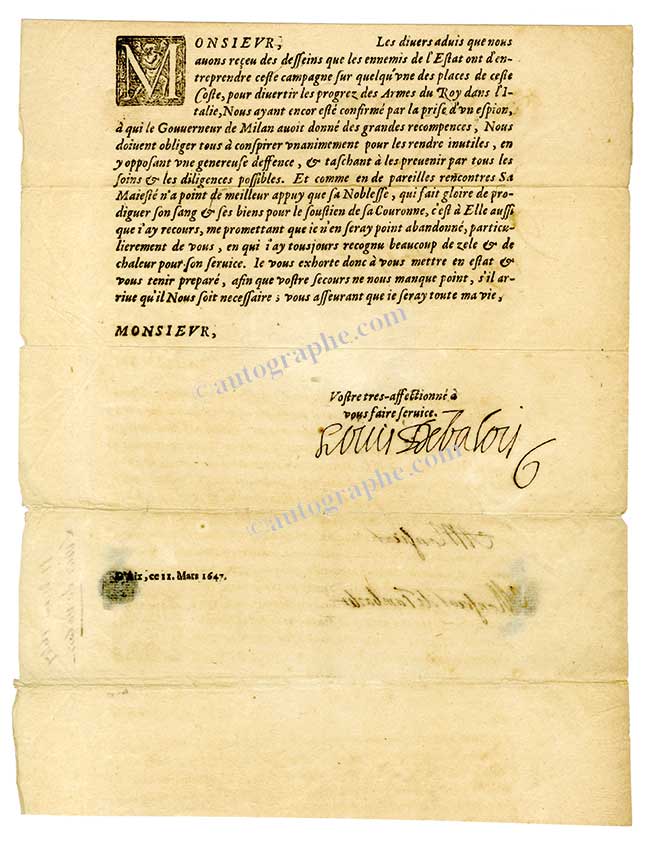 MONSIEVR, Les diuers aduis que nous
auons reçeu des desseins que les ennemis de l'Estat ont d'en-
treprendre ceste campagne sur quelqu'vne des places de ceste
Coste, pour diuertir les progrez des Armes du Roy dans l'I-
talie, Nous ayant encor esté confirmé par la prise d'vn espion,
à qui le Gouuerneur de Milan auoit donné des grandes recompences, Nous
doiuent obliger tous à conspirer vnanimement pour les rendre inutiles, en
y opposant vne genereuse deffence, & taschant à les preuenir par tous les
soins & les diligences possibles. Et comme en de pareilles rencontres Sa
Maiesté n'a point de meilleur appuy que sa Noblesse, qui fait gloire de pro-
diguer son sang & ses biens pour le soustien de sa Couronne, c'est à Elle aussi
que i'ay recours, me promettant que ie n'en seray point abandonné, particu-
lierement de vous, en qui i'ay tousjours recognu beaucoup de zele & de
chaleur pour son seruice. Ie vous exhorte donc à vous mettre en estat &
vous tenir preparé, afin que vostre secours ne nous manque point, s'il ar-
riue qu'il Nous soit necessaire; vous asseurant que ie seray toute ma vie,
MONSIEVR,
©autographe.com
Vostre tres-affectionné à
vous faire seruice.
Louis Debalois
©autographe.com
D'Aix, ce 11. Mars 1647.